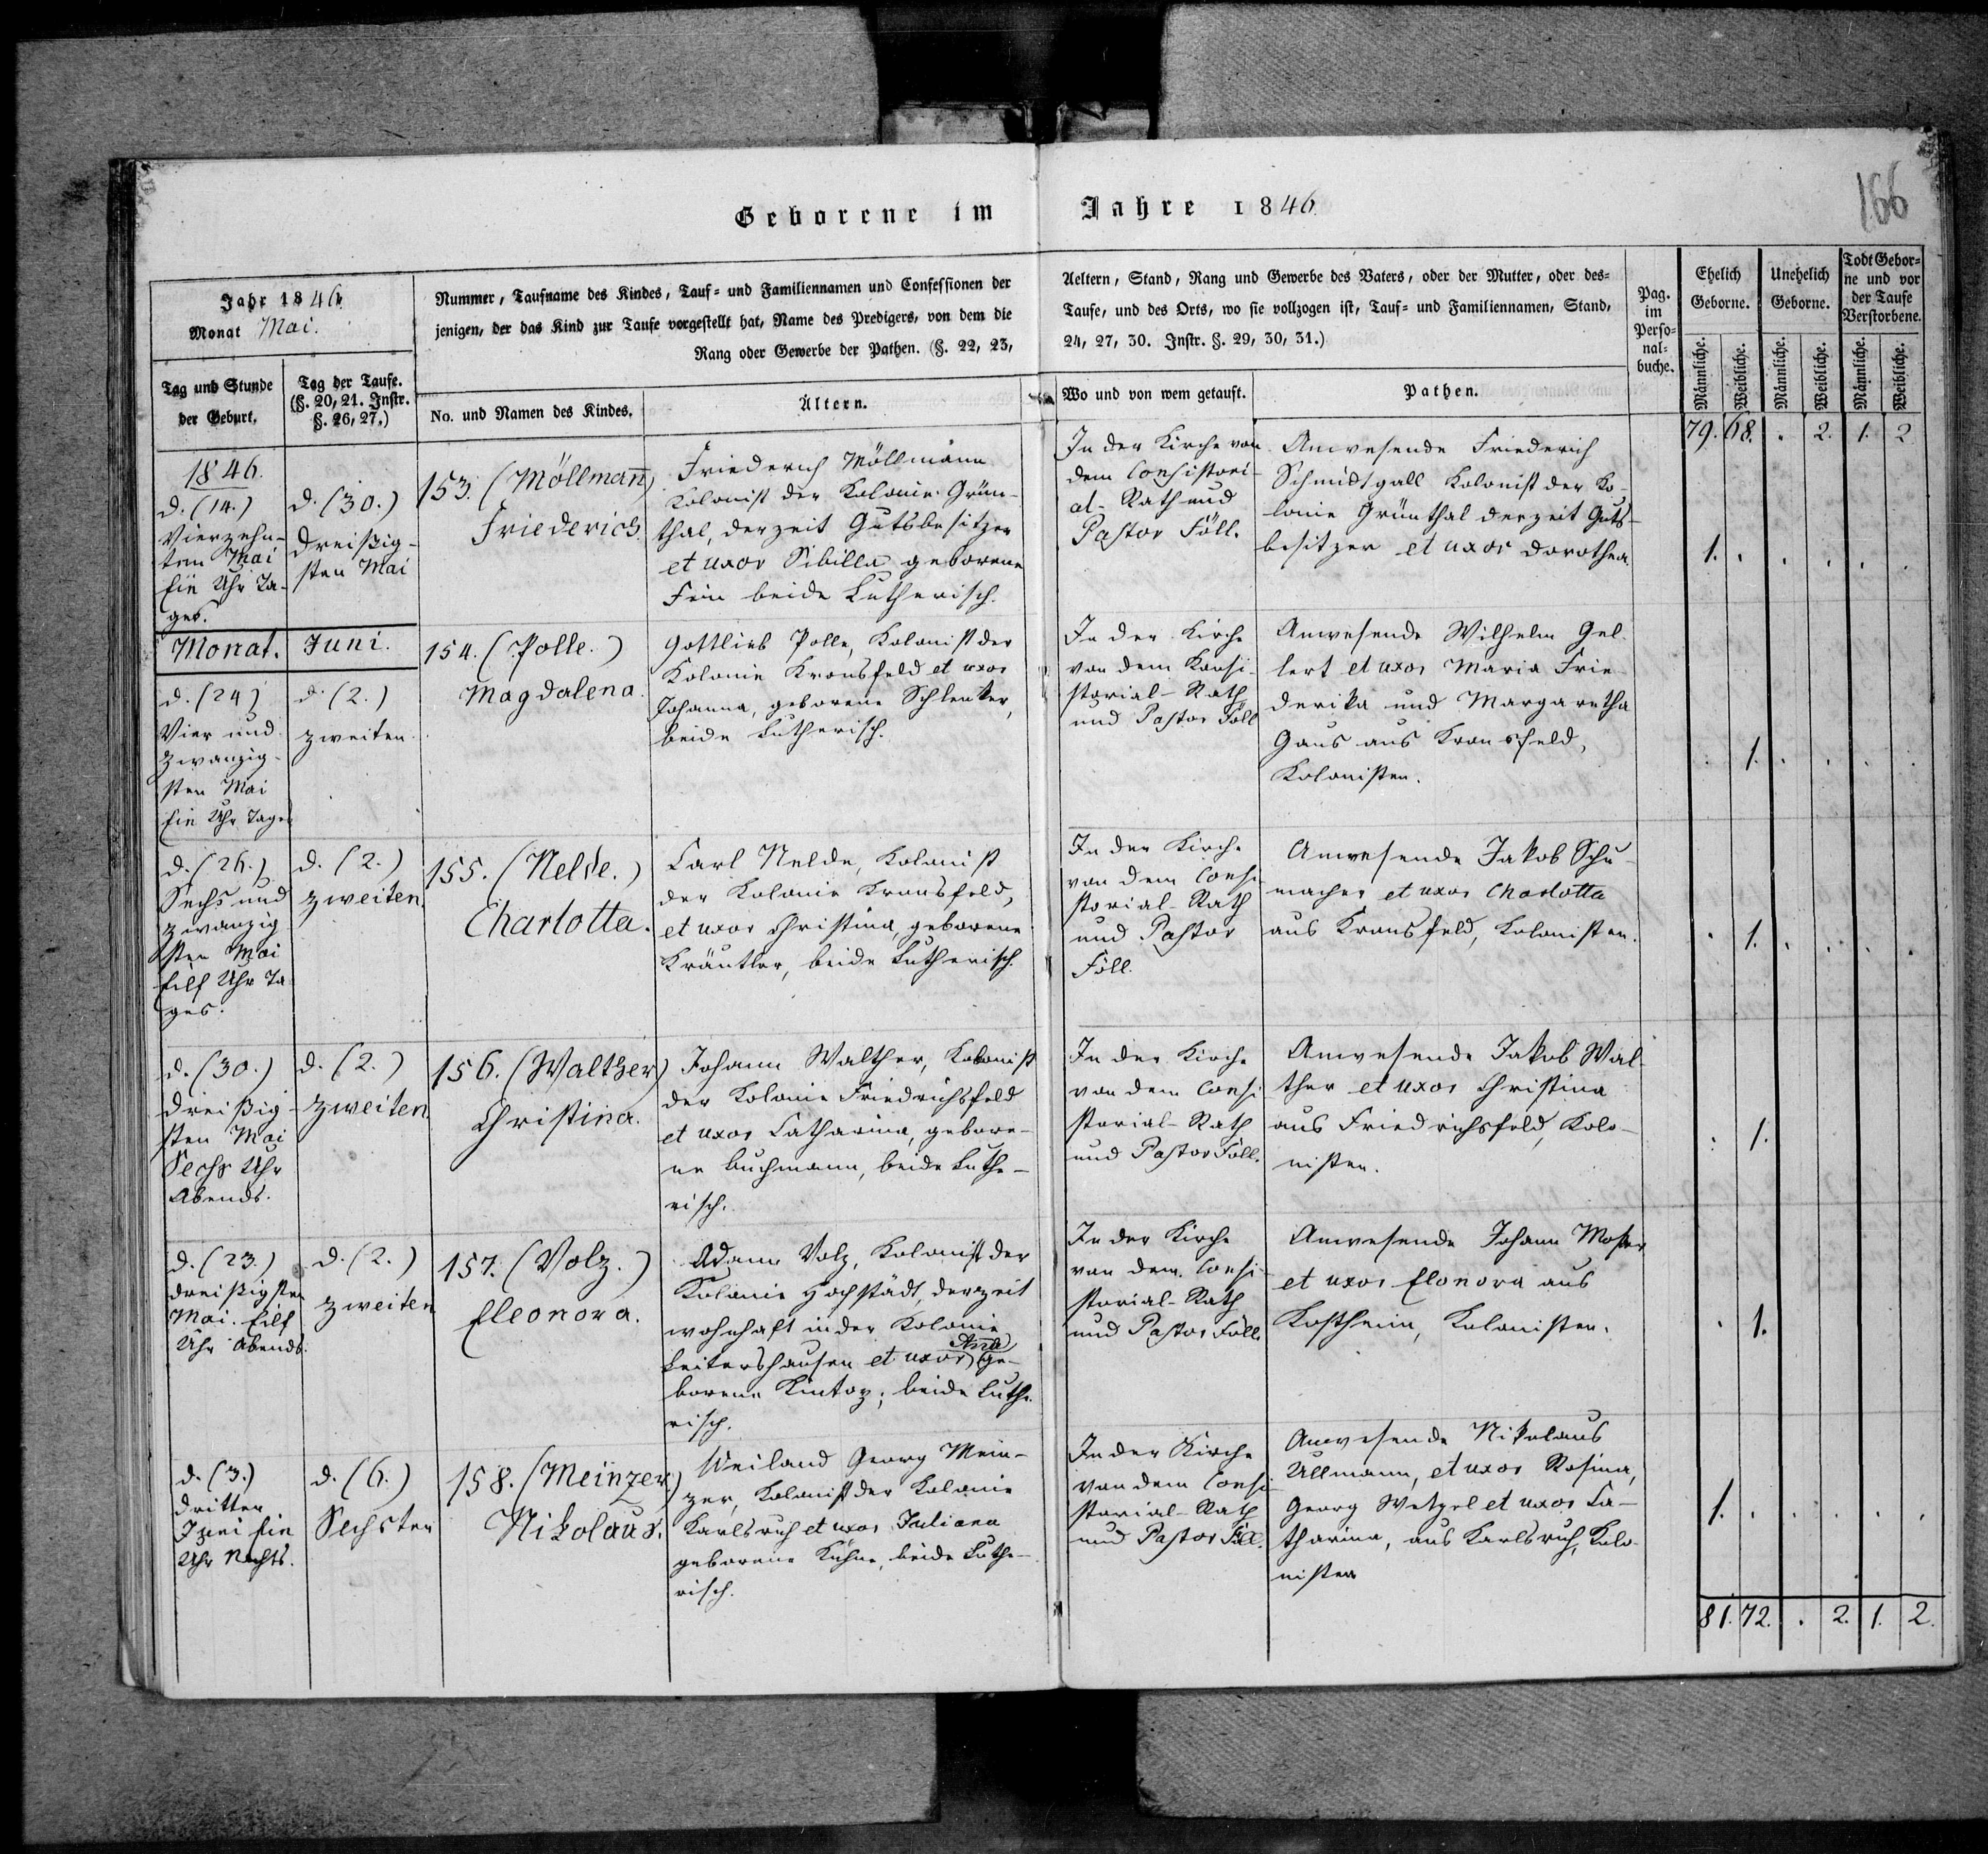 166
Geborene im Jahre 1846.
Jahr 1846.
Monat Mai.
Nummer, Taufname des Kindes, Tauf= und Familiennamen und Confessionen der
Aeltern, Stand, Rang und Gewerbe des Vaters, oder der Mutter, oder des=
jenigen, der das Kind zur Taufe vorgestellt hat, Name des Predigers, von dem die
Taufe, und des Orts, wo sie vollzogen ist, Tauf= und Familiennamen, Stand,
Rang oder Gewerbe der Pathen. (§. 22, 23,
24, 27, 30. Instr. §. 29, 30, 31.)
Pag.
im
Perso=
nal=
buche.
Ehelich
Geborne.
Unehelich
Geborne.
Todt Gebor=
ne und vor
der Taufe
Verstorbene.
Männliche.
Weibliche.
Männliche.
Weibliche.
Männliche.
Weibliche.
Tag und Stunde
der Geburt.
Tag der Taufe.
(§. 20, 21. Instr.
§. 26, 27.)
No. und Namen des Kindes.
Ältern.
Wo und von wem getauft.
Pathen.
79. 68. . 2. 1. 2
1846.
d. (14.)
Vierzehn-
ten Mai
Ein Uhr Ta-
ges.
d. (30.)
dreißig-
sten Mai
153. (Möllmann)
Friederich.
Friederich Möllmann
Kolonist der Kolonie Grün-
thal, derzeit Gutsbesitzer
et uxor Sibilla geborene
Fein beide Lutherisch.
In der Kirche von
dem Consistori-
al-Rath und
Pastor Föll.
Anwesende Friederich
Schmidtgall Kolonist der Ko-
lonie Grünthal derzeit Guts-
besitzer et uxor Dorothea.
1. . . . . .
Monat. Juni.
d. (24)
Vier und
zwanzig-
sten Mai
Ein Uhr Tages
d. (2.)
zweiten.
154. (Polle.)
Magdalena.
Gottlieb Polle, Kolonist der
Kolonie Kronsfeld et uxor
Johanna, geborene Schlenker,
beide Lutherisch.
In der Kirche
von dem Konsi-
storial-Rath
und Pastor Föll
Anwesende Wilhelm Gel-
lert et uxor Maria Frie
derika und Margaretha
Gaus aus Kronsfeld,
Kolonisten.
. 1. . . . .
d. (26.)
Sechs und
zwanzig
sten Mai
Eilf Uhr Ta
ges.
d. (2.)
zweiten.
155. (Nelde.)
Charlotta.
Carl Nelde, Kolonist
der Kolonie Kronsfeld,
et uxor Christina, geborene
Kräutler, beide Lutherisch.
In der Kirche
von dem Consi-
storial-Rath
und Pastor
Föll.
Anwesende Jakob Schu-
macher et uxor Charlotta
aus Kronsfeld, Kolonisten.
. 1. . . . .
d. (30.)
dreißig-
sten Mai
Sechs Uhr
Abends.
d. (2.)
zweiten.
156. (Walther)
Christina.
Johann Walther, Kolonist
der Kolonie Friedrichsfeld
et uxor Catharina, gebore-
ne Buchmann, beide Luthe-
risch.
In der Kirche
von dem Consi
storial-Rath
und Pastor Föll.
Anwesende Jakob Wal-
ther et uxor Christina
aus Friedrichsfeld, Kolo-
nisten.
. 1.
d. (23.)
dreißigsten
Mai. Eilf
Uhr Abends.
d. (2.)
zweiten
157. (Volz.)
Eleonora.
Adam Volz, Kolonist der
Kolonie Hochstädt, derzeit
wohnhaft in der Kolonie
Leitershausen et uxor Ana ge-
borene Kintz; beide Luthe-
risch.
In der Kirche
von dem Consi-
storial-Rath
und Pastor Föll.
Anwesende Johann Moser
et uxor Elonora aus
Kostheim, Kolonisten.
. 1.
d. (3.)
dritten
Juni Ein
Uhr Nachts.
d. (6.)
Sechsten
158. (Meinzer)
Nikolaus.
Weiland Georg Mein-
zer, Kolonist der Kolonie
Karlsruh et uxor Juliana
geborene Kühne, beide Luthe-
risch.
In der Kirche
von dem Consi-
storial-Rath
und Pastor Föll.
Anwesende Nikolaus
Ullmann, et uxor Rosina,
Georg Wetzel et uxor Ca-
tharina, aus Karlsruh, Kolo-
nisten
1. . . . . .
81. 72. . 2. 1. 2.